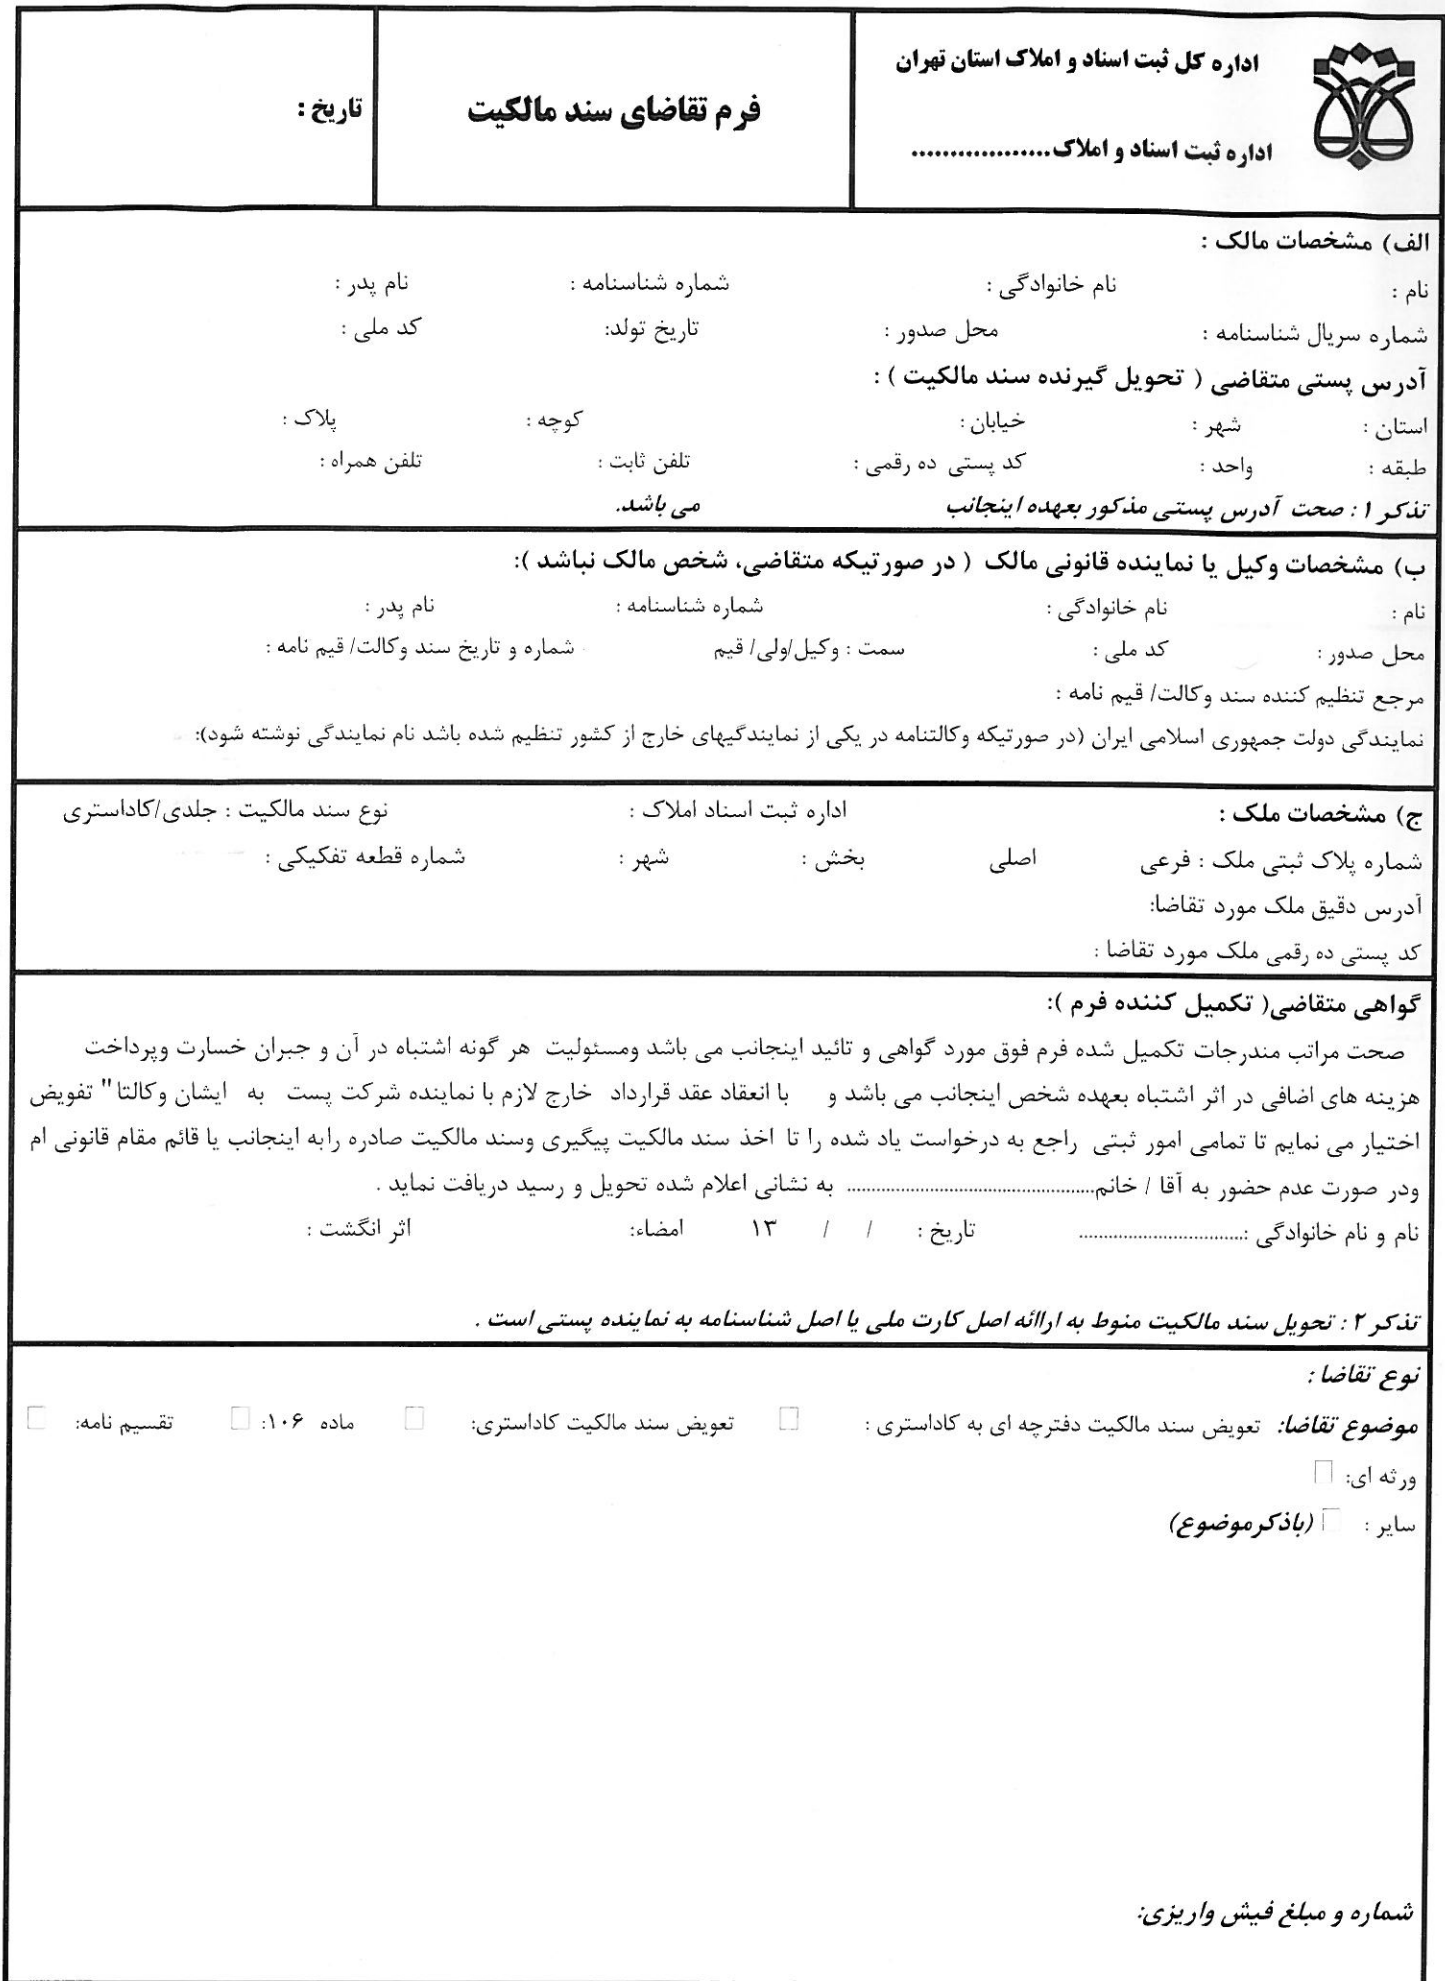 اداره کل ثبت اسناد و املاک استان تهران
اداره ثبت اسناد و املاک..................
فرم تقاضای سند مالکیت
تاریخ :
الف) مشخصات مالک :
نام : نام خانوادگی : شماره شناسنامه : نام پدر :
شماره سریال شناسنامه : محل صدور : تاریخ تولد: کد ملی :
آدرس پستی متقاضی ( تحویل گیرنده سند مالکیت ) :
استان : شهر : خیابان : کوچه : پلاک :
طبقه : واحد : کد پستی ده رقمی : تلفن ثابت : تلفن همراه :
تذکر ۱ : صحت آدرس پستی مذکور بعهده اینجانب می باشد.
ب) مشخصات وکیل یا نماینده قانونی مالک ( در صورتیکه متقاضی، شخص مالک نباشد ):
نام : نام خانوادگی : شماره شناسنامه : نام پدر :
محل صدور : کد ملی : سمت : وکیل/ولی/ قیم شماره و تاریخ سند وکالت/ قیم نامه :
مرجع تنظیم کننده سند وکالت/ قیم نامه :
نمایندگی دولت جمهوری اسلامی ایران (در صورتیکه وکالتنامه در یکی از نمایندگیهای خارج از کشور تنظیم شده باشد نام نمایندگی نوشته شود):
ج) مشخصات ملک : اداره ثبت اسناد املاک : نوع سند مالکیت : جلدی/کاداستری
شماره پلاک ثبتی ملک : فرعی اصلی بخش : شهر : شماره قطعه تفکیکی :
آدرس دقیق ملک مورد تقاضا:
کد پستی ده رقمی ملک مورد تقاضا :
گواهی متقاضی( تکمیل کننده فرم ):
صحت مراتب مندرجات تکمیل شده فرم فوق مورد گواهی و تائید اینجانب می باشد ومسئولیت هر گونه اشتباه در آن و جبران خسارت وپرداخت
هزینه های اضافی در اثر اشتباه بعهده شخص اینجانب می باشد و با انعقاد عقد قرارداد خارج لازم با نماینده شرکت پست به ایشان وکالتا" تفویض
اختیار می نمایم تا تمامی امور ثبتی راجع به درخواست یاد شده را تا اخذ سند مالکیت پیگیری وسند مالکیت صادره رابه اینجانب یا قائم مقام قانونی ام
ودر صورت عدم حضور به آقا / خانم................................................ به نشانی اعلام شده تحویل و رسید دریافت نماید .
نام و نام خانوادگی :................................ تاریخ : / / ۱۳ امضاء: اثر انگشت :
تذکر ۲ : تحویل سند مالکیت منوط به اراائه اصل کارت ملی یا اصل شناسنامه به نماینده پستی است .
نوع تقاضا :
موضوع تقاضا: تعویض سند مالکیت دفترچه ای به کاداستری : تعویض سند مالکیت کاداستری: ماده ۱۰۶: تقسیم نامه:
ورثه ای:
سایر : (باذکرموضوع)
شماره و مبلغ فیش واریزی: